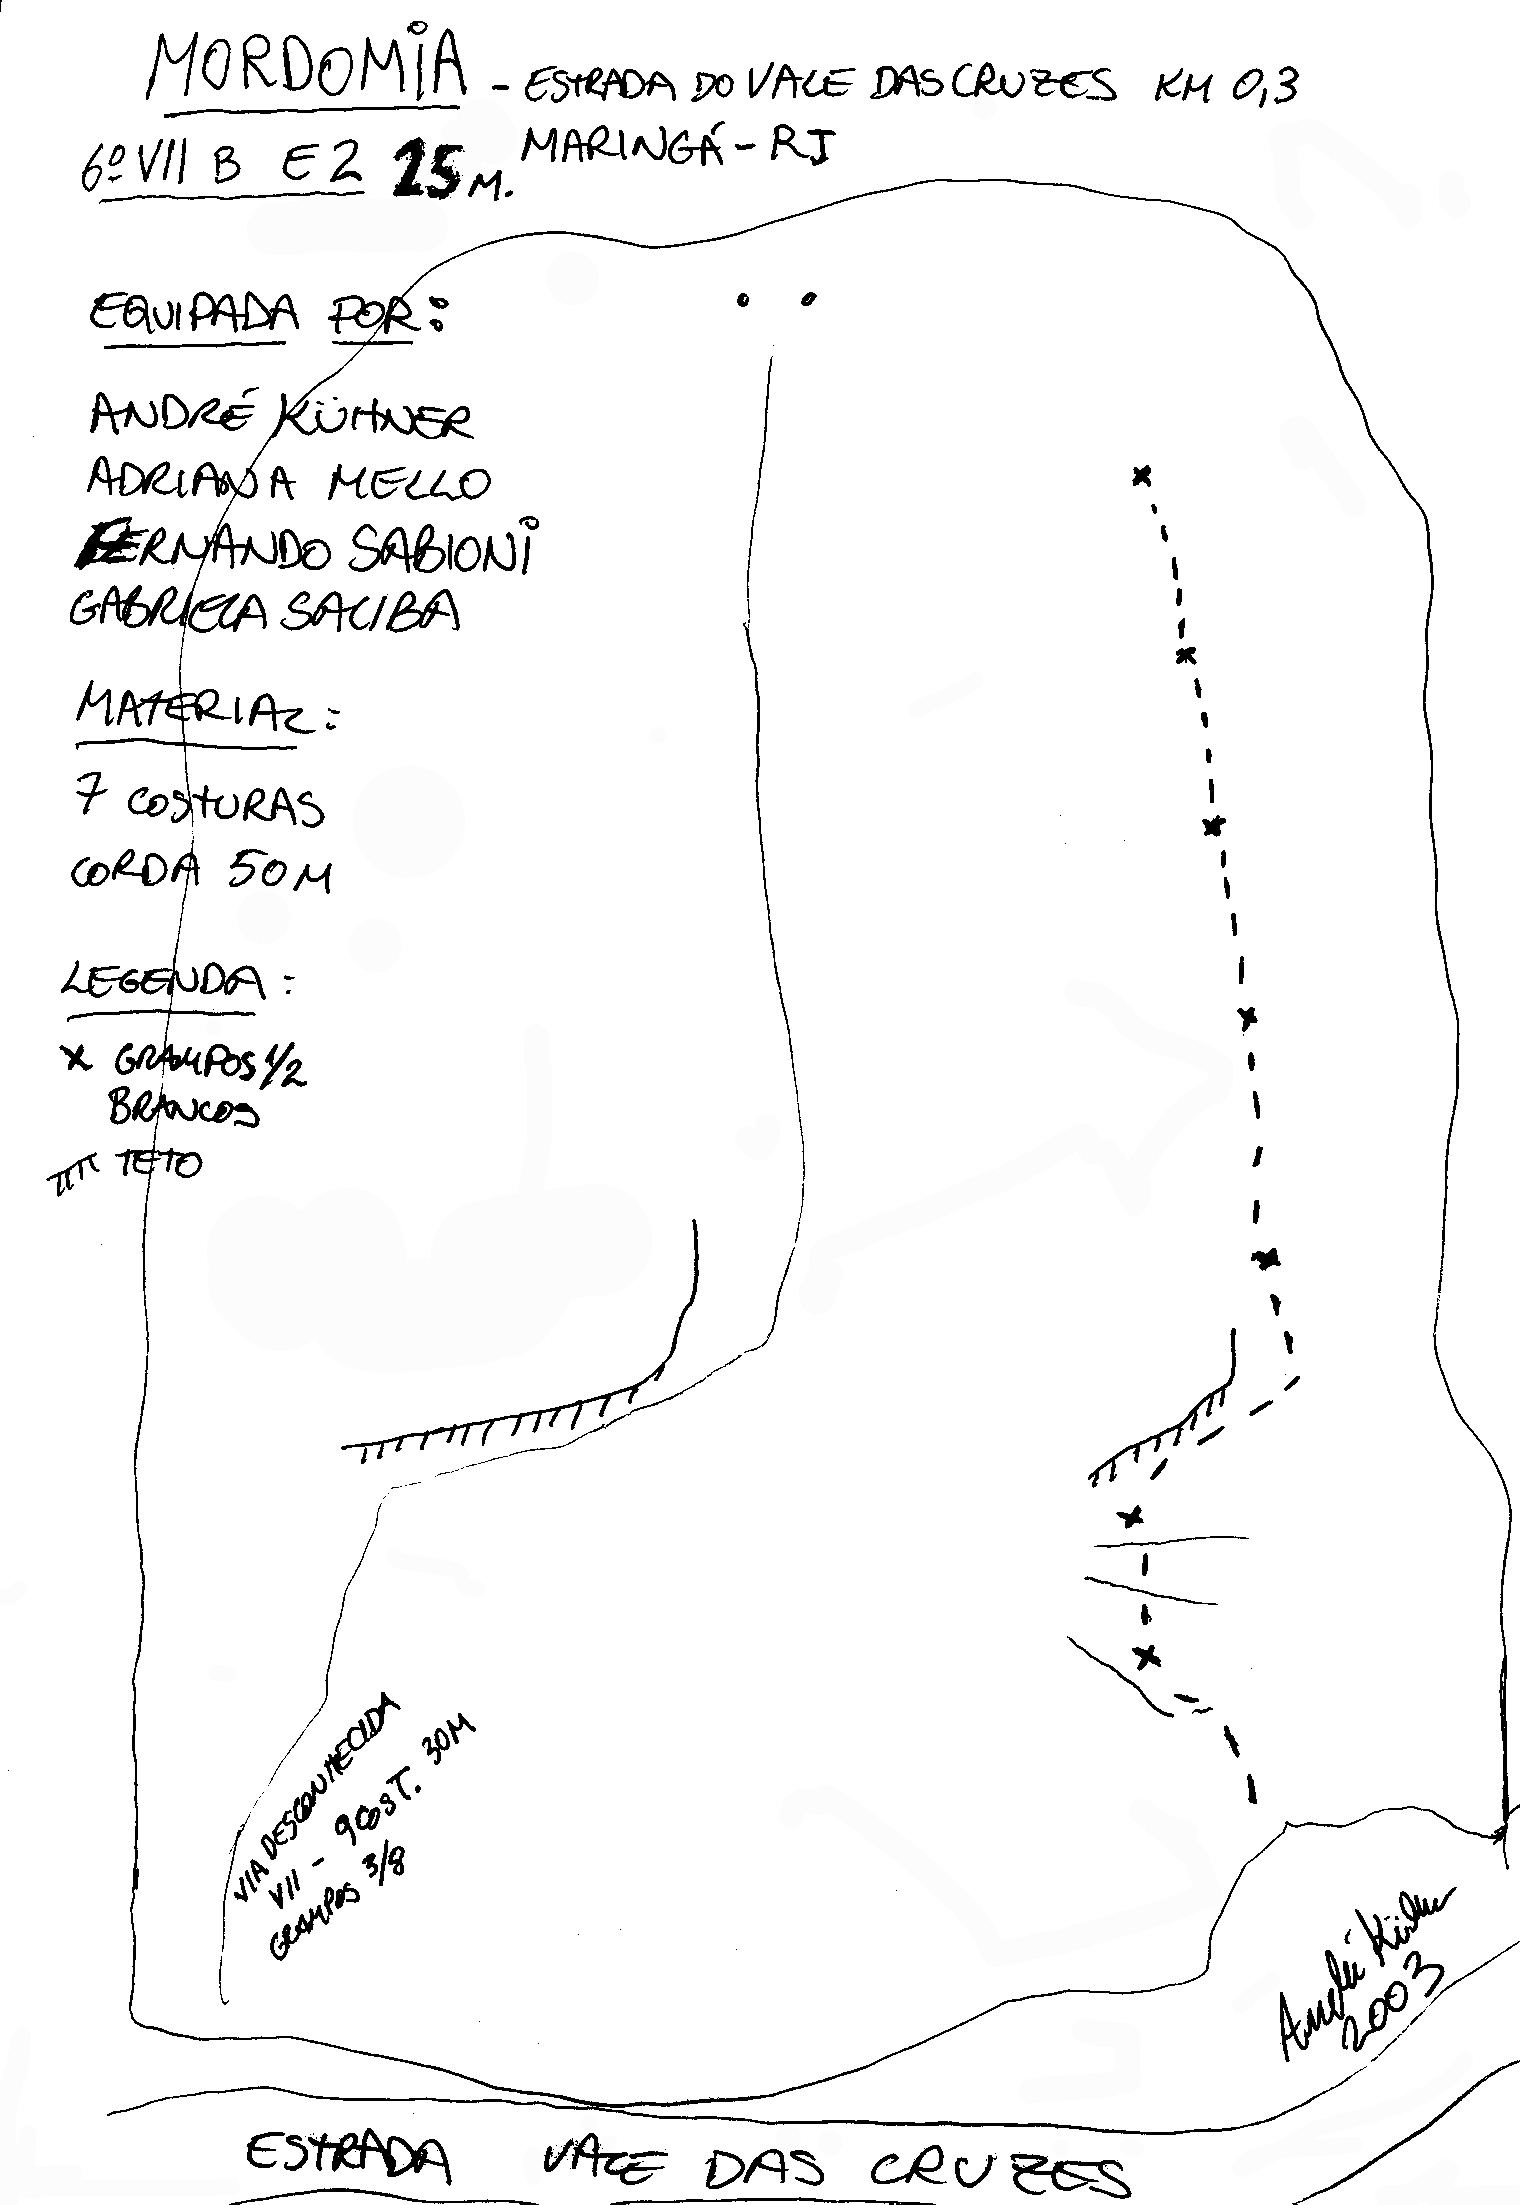 MORDOMIA - ESTRADA DO VALE DAS CRUZES KM 0,3
MARINGÁ - RJ
6º VII B E2 25 M.
EQUIPADA POR:
ANDRÉ KÜHNER
ADRIANA MELLO
FERNANDO SABIONI
GABRIELA SALIBA
MATERIAL:
7 COSTURAS
CORDA 50M
LEGENDA:
X GRAMPOS 1/2
BRANCOS
TETO
VIA DESCONHECIDA
VII - 9 COST. 30M
GRAMPOS 3/8
André Kühner
2003
ESTRADA VALE DAS CRUZES